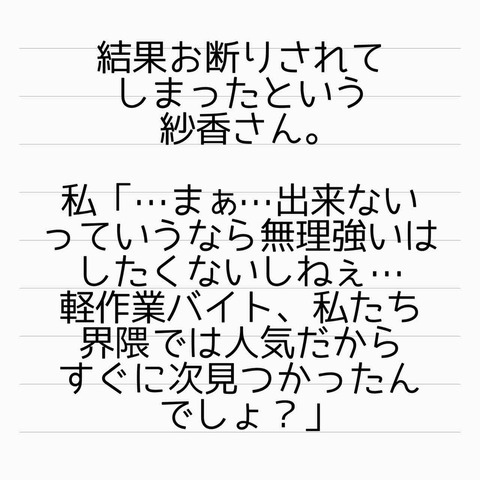 結果お断りされて
しまったという
紗香さん。
私「…まぁ…出来ない
っていうなら無理強いは
したくないしねぇ…
軽作業バイト、私たち
界隈では人気だから
すぐに次見つかったん
でしょ？」